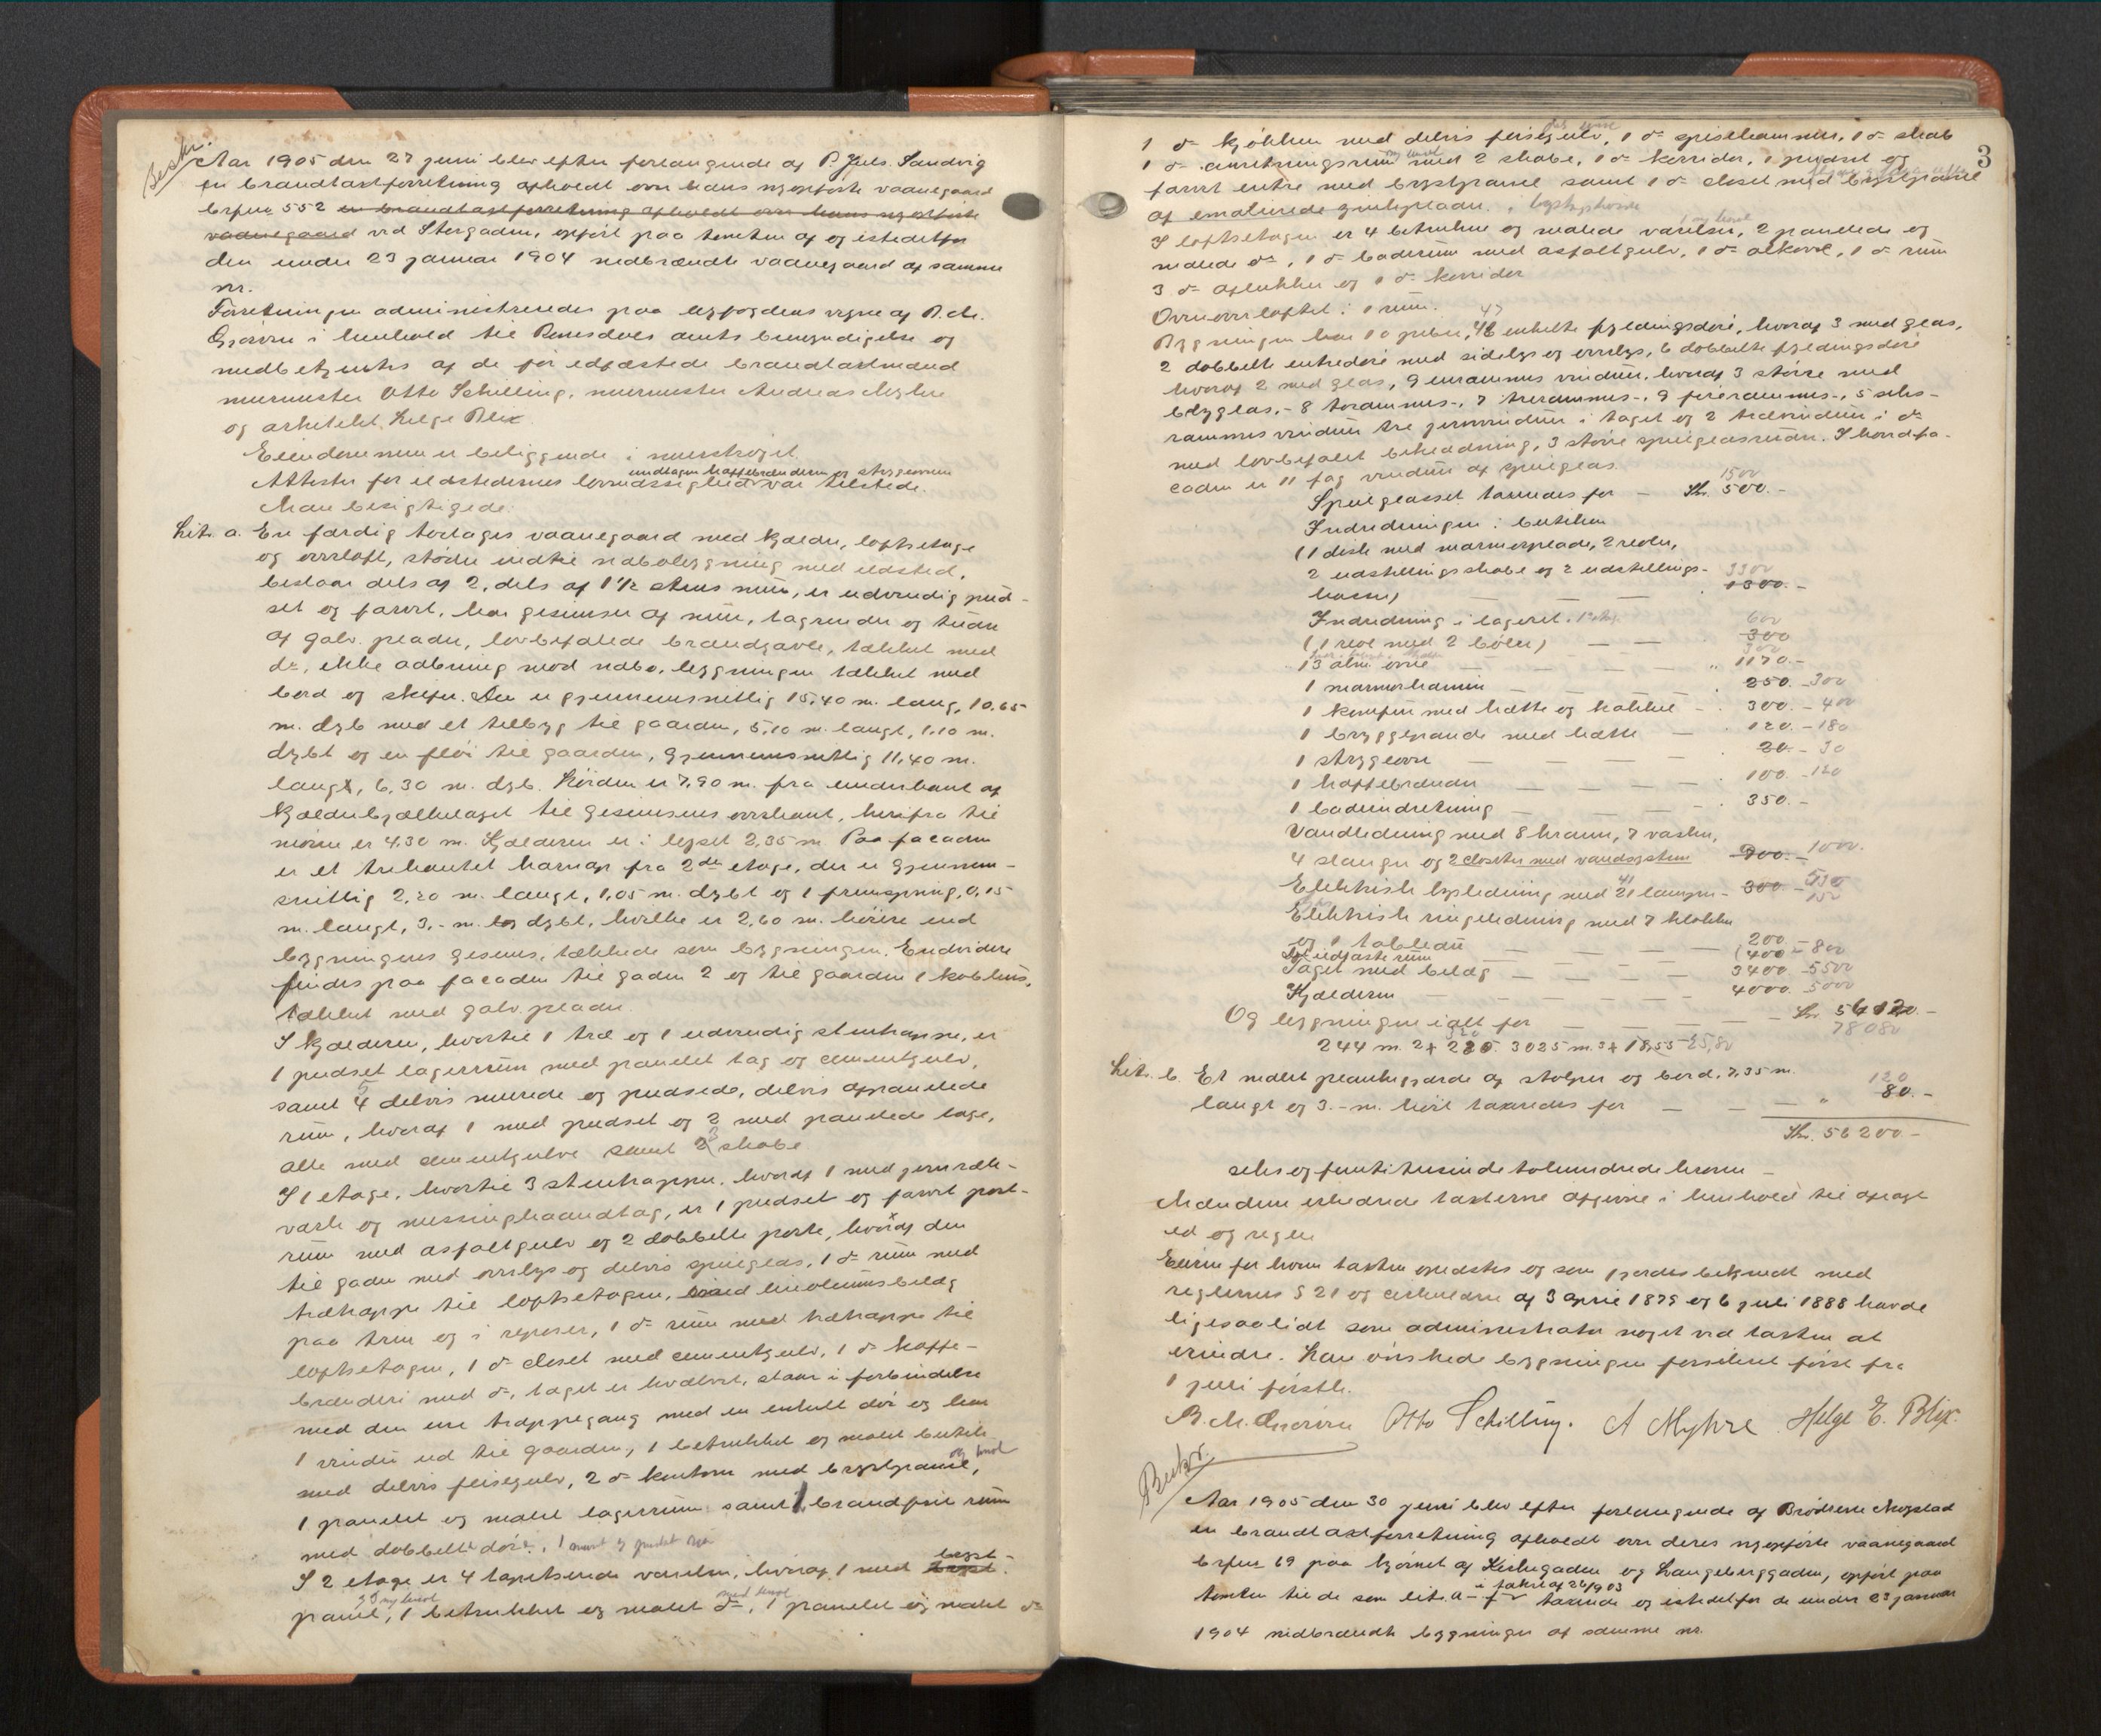 Beskr.
Aar 1905 den 27 juni blev efter forlangende af P. Juls. Sandvig
en brandtaxtforretning afholdt over hans nyopførte vaanegaard
brfnr. 552 en brandtaxtforretning afholdt over hans nyopførte
vaanegaard ved Storgaden, opført paa tomten af og istedetfor
den under 23 januar 1904 nedbrændte vaanegaard af samme
nr.
Forretningen administreredes paa byfogdens vegne af B. M.
i henhold til Romsdals amts bemyndigelse og
medbetjentes af de før edfæstede brandtaxtmænd
murmester Otto Schilling, murmester Andreas Myhre
og arkitekt Helge Blix.
Eiendommen er beliggende i murstrøget.
Attester for ildstedernes lovmæssighed undtagen kaffebrænderen og strygeovnen var tilstede.
Man besigtigede:
Lit. a. En færdig toetages vaanegaard med kjælder, loftsetage
og overloft, støder indtil nabobygning med ildsted,
bestaar dels af 2, dels af 1 1/2 stens mur, er udvendig pud-
set og farvet, har gesimser af mur, tagrender og tuder
af galv. plader, lovbefalede brandgavle, tækket med
do, ikke aabning mod nabo, bygningen tækket med
bord og skifer. Den er gjennemsnitlig 15,40 m. lang, 10,65
m. dyb med et tilbyg til gaarden, 5,10 m. langt, 1,10 m.
dybt og en fløi til gaarden, gjennemsnitlig 11,40 m.
langt, 6,30 m. dyb. Høiden er 7,90 m. fra underkant af
kjælderbjælkelaget til gesimsens overkant, herifra til
mønne er 4,30 m. Kjælderen er i lyset 2,35 m. Paa facaden
er et trekantet karnap fra 2den etage, der er gjennem-
snitlig 2,20 m. langt, 1,05 m. dybt og 1 fremspring, 0,15
m. langt, 3,- m. dybt, hvilke er 2,60 m. høiere end
bygningens gesims, tækkede som bygningen. Endvidere
findes paa facaden til gaden 2 og til gaarden 1 kobhus,
tækket med galv. plader.
I kjælderen, hvortil 1 træ og 1 udvendig stentrappe, er
1 pudset lagerrum med panelet tag og cementgulv,
samt 4 5 delvis murede og pudsede, delvis afpanelede
rum, hvoraf 1 med pudset og 2 med panelede tage,
alle med cementgulve samt 2 3 skabe
I 1 etage, hvortil 3 stentrapper, hvoraf 1 med jernræk-
værk og messinghaandtag, er 1 pudset og farvet port-
rum med asfaltgulv og 2 dobbelte porte, hvoraf den
til gaden med overlys og delvis speilglas, 1 do rum med
trætrappe til loftsetagen, med linoleumsbelæg
paa trin og i reposer, 1 do rum med trætrappe til
loftsetagen, 1 do closet med cementgulv, 1 do kaffe-
brænderi med do, taget er hvælvet, staar i forbindelse
med den ene trappegang med en enkelt dør og har
1 vindu ud til gaarden, 1 betrukket og malet butik
med delvis flisegulv, 2 do kontorer med brystpanel,
1 panelet og malet lagerrum samt 1 brandfrit rum
med dobbelt dør.
I 2 etage er 4 tapetserede værelser, hvoraf 1 med bryst-
panel, 1 betrukket og malet do, 1 panelet og malet do
3
1 do kjøkken med delvis flisegulv, 1 do spisekammer, 1 do skab
1 do anretningsrum med 2 skabe, 1 do korridor, 1 pudset og
farvet entre med brystpanel samt 1 do closet med brystpanel
af emalierede zinkplader.
I loftsetagen er 4 betrukne og malede værelser, 2 panelede og
malede do, 1 do baderum med asfaltgulv, 1 do alkove, 1 do rum
3 do aflukker og 1 do korridor
Overoverloftet: 1 rum.
Bygningen har 10 piber, 46 47 enkelte fyldingsdøre, hvoraf 3 med glas,
2 dobbelte entredøre med sidelys og overlys, 6 dobbelte fyldingsdøre
hvoraf 2 med glas, 9 enrammes vinduer, hvoraf 3 større med
blyglas, - 8 torammes-, 7 trerammes-, 9 firerammes-, 5 seks-
rammes vinduer tre jernvinduer i taget og 2 trævinduer i do
med lovbefalet beklædning, 3 større speilglasruder. I hovedfa-
caden er 11 fag vinduer af speilglas.
Speilglasset taxeredes for — Kr. 500.- 1500
Indredningen i butiken
(1 disk med marmorplade, 2 reoler,
2 udstillingsskabe og 2 udstillings-
kasser) — — — 1300.- 3300
Indredning i lageret
(1 reol med 2 bøler) — — 300 600
13 alm. ovne — — — — " 1170.-
1 marmorkamin — — — 250.- 300
1 komfur med hætte og kakkel — 300.- 400
1 bryggepande med hætte — 120.- 180
1 strygeovn — — — 20.- 30
1 kaffebrænder — — — 100.- 120
1 badeindretning — — — 350.-
Vandledning med 8 kraner, 7 vasker,
4 slanger og 2 closetter med vandsystem 900.- 1000.
Elektrisk lysledning med 21 41 lamper - 300.- 550
Elektrisk ringeledning med 7 klokker 150
og 1 tableau — — — — 200.-
Det ildfaste rum — — — 400 - 800
Taget med belæg — — — — 3400 - 5500
Kjælderen — — — — — 4000. 5000
Og bygningen ialt for — — — — Kr. 56120.-
78080
244 m.2 3025 m.3 18,55 25,80
Lit. b. Et malet plankegjærde af stolper og bord, 7,35 m.
langt og 3.- m. høit taxeredes for — — — " 80.- 120
Kr. 56200.-
seks og femti tusinde tohundrede kroner —
Mændene erklærede taxterne afgivne i henhold til aflagt
ed og regler
Eieren for hvem taxten oplæstes og som gjordes bekjendt med
reglernes § 21 og cirkulære af 3 april 1879 og 6 juli 1888 havde
ligesaalidt som administrator noget ved taxten at
erindre. Han ønskede bygningen forsikret først fra
1 juli førstk.
B. M. Otto Schilling. A Myhre Helge E. Blix.
Beskr.
Aar 1905 den 30 juni blev efter forlangende af Brødrene Møystad
en brandtaxtforretning afholdt over deres nyopførte vaanegaard
brfnr. 69 paa hjørnet af Kirkegaden og Langeberggaden, opført paa
tomten til de som lit. a - f i taxt af 26/9 03 taxerede og istedetfor de under 23 januar
1904 nedbrændte bygninger af samme nr.